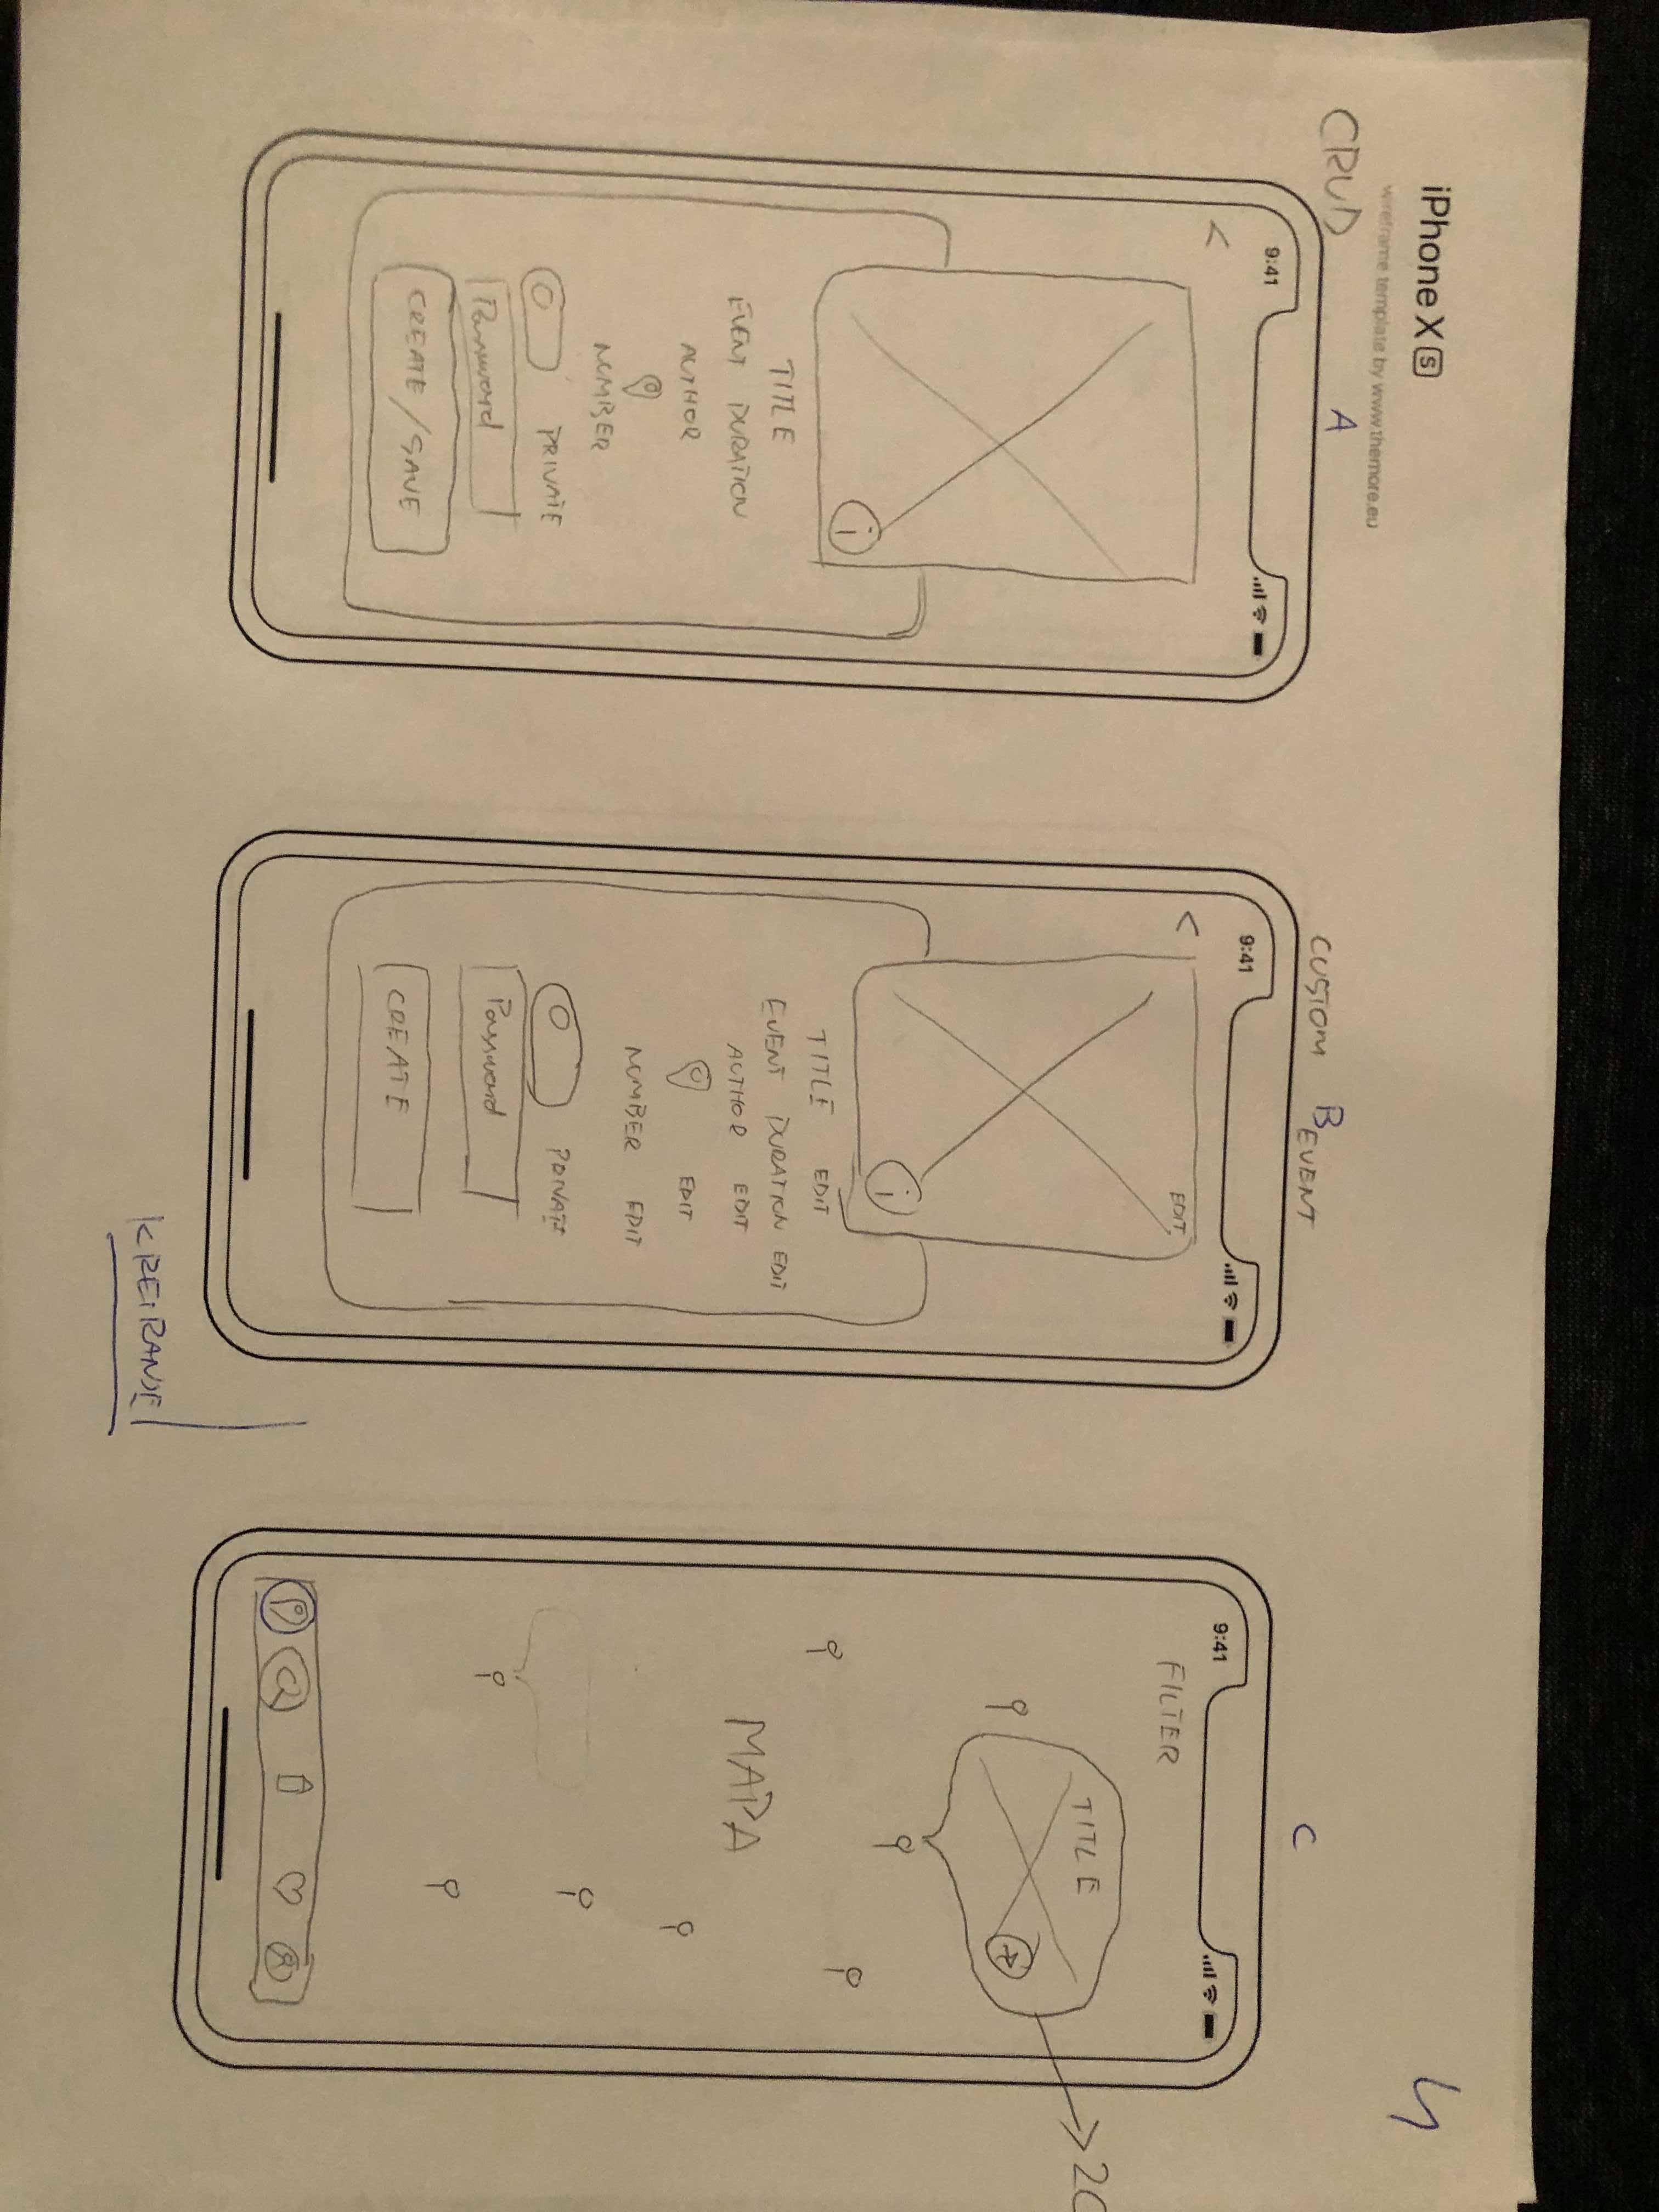 iPhone X S
wireframe template by www.themore.eu
4
CRUD
A
9:41
<
i
TITLE
EVENT DURATION
AUTHOR
NUMBER
PRIVATE
Password
CREATE / SAVE
CUSTOM B EVENT
9:41
<
EDIT
i
TITLE EDIT
EVENT DURATION EDIT
AUTHOR EDIT
EDIT
NUMBER EDIT
PRIVATE
Password
CREATE
KREIRANJE
C
9:41
FILTER
TITLE
MAPA